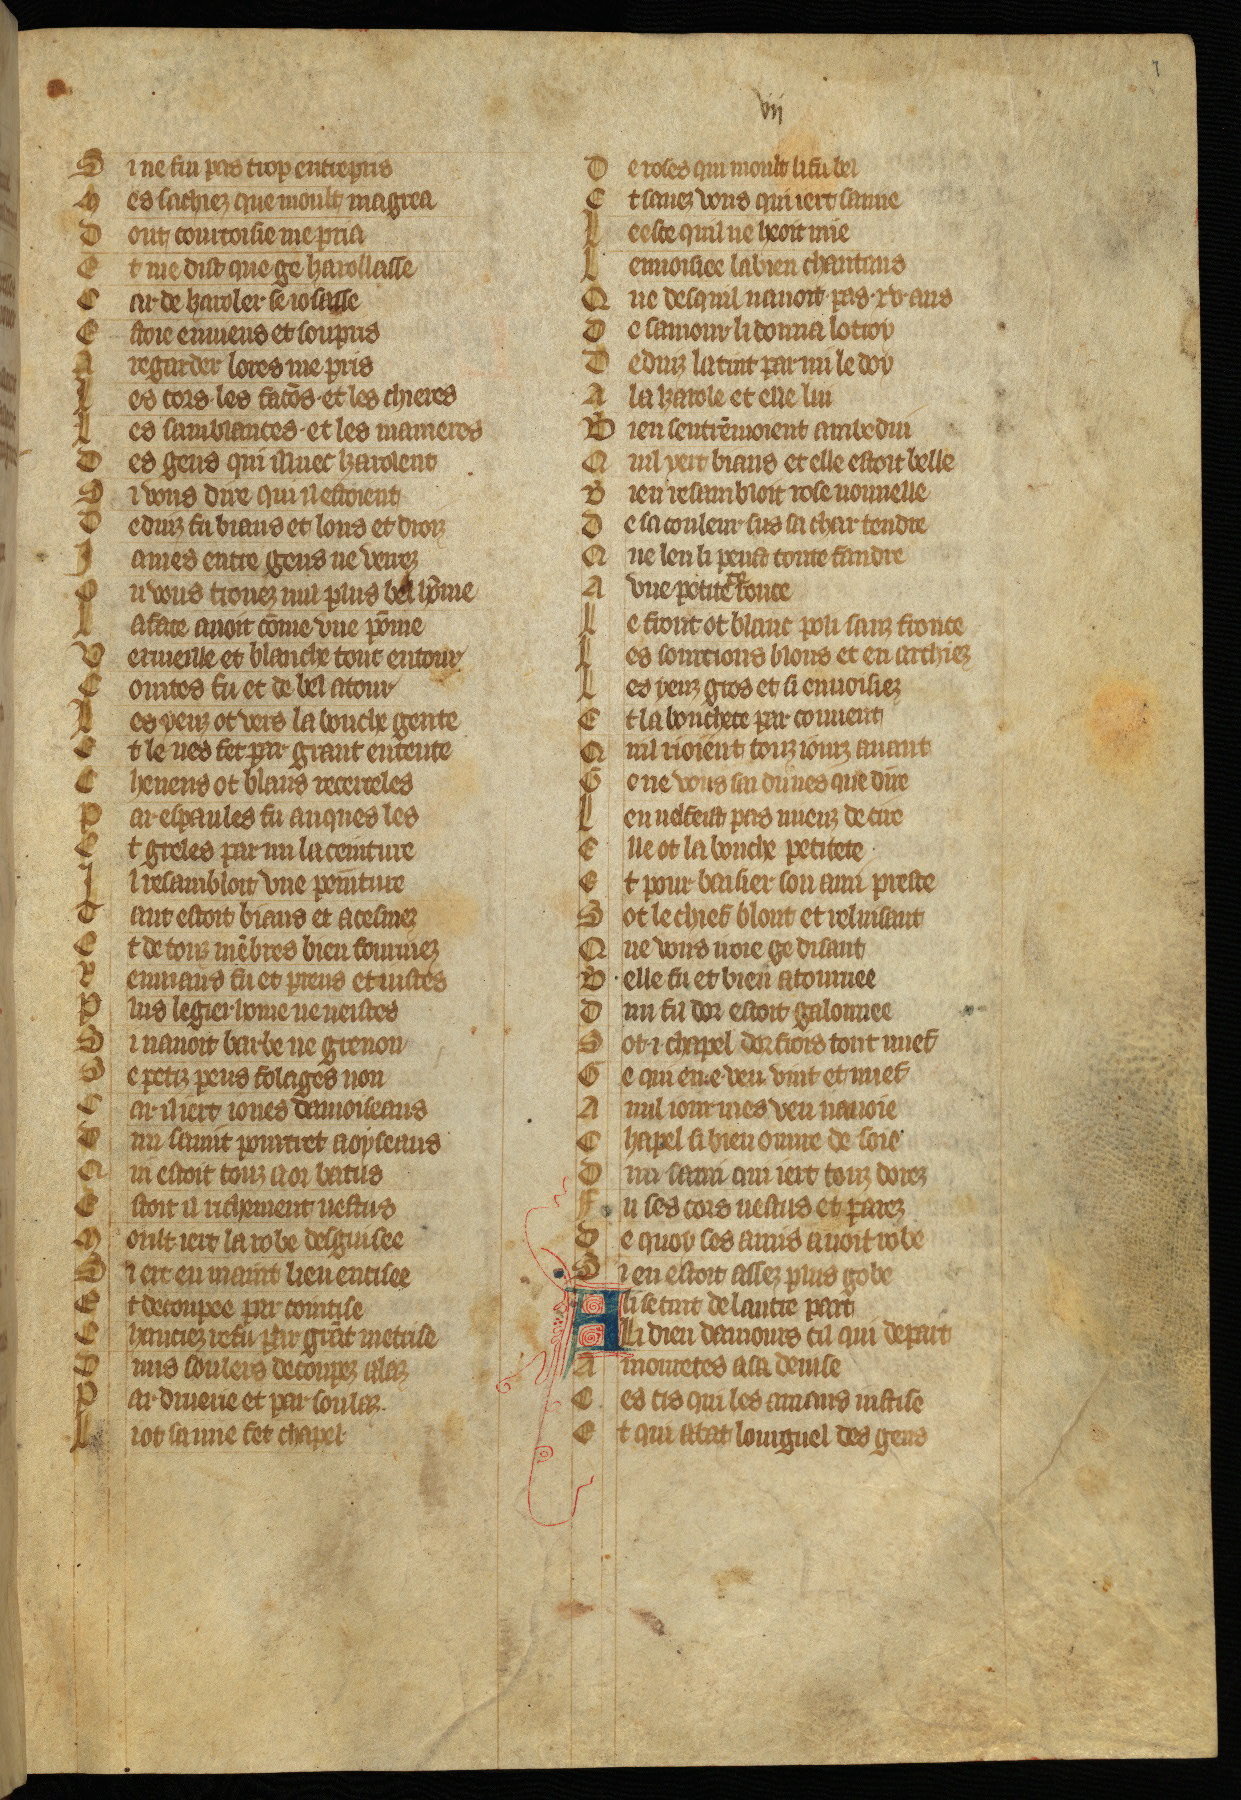 vij
7
S i ne fui pas trop entrepris
M es sachiez que moult magrea
D ont courtoisie me pria
E t me dist que ge karollasse
C ar de karoler se iosasse
E stoie enuieus et soupris
A regarder lores me pris
L es cors les facõs et les chieres
L es samblances et les manieres
D es gens qui illuec karolent
S i vous dire qui il estoient
D eduiz fu biaus et lons et droiz
J ames entre gens ne venez
O u vous truuez nul plus bel hõme
L a face auoit cõme vne põme
V ermeille et blanche tout entour
C ointes fu et de bel atour
L es yeuz ot vers la bouche gente
E t le nes fet par grant entente
C heueus ot blans recerceles
P ar espaules fu auques les
E t greles parmi la ceinture
J l resambloit vne peinture
T ant estoit biaus et acesmez
E t de touz mẽbres bien fourmez
R emuans fu et preus et uistes
P lus legier home ne ueistes
S i nauoit barbe ne grenon
S e petiz peus folages non
C ar il iert iones damoiseaus
D un samit pourtret a oyseaus
Q ui estoit touz a or batus
E stoit il richement uestus
M oult iert la robe desguisee
S i ert en maint lieu encisee
E t decoupee par cointise
C hauciez refu par grãt metrise
D uns soulers decoupez a laz
P ar druerie et par soulaz
L i ot samie fet chapel
D e roses qui moult li fu bel
E t sauez vous qui iert samie
L eesce qui ne heoit mie
L enuoisiee la bien chantans
Q ue desquil nauoit pas xv ans
D e samour li donna lotroy
D eduiz la tint parmi le doy
A la karole et elle lui
B ien sentrẽmoient ambedui
Q uil yert biaus et elle estoit belle
B ien resambloit rose nouuelle
D e sa couleur sus sa char tendre
Q ue len li peust toute fandre
A vne petite ronce
L e front ot blanc poli sanz fronce
L es sourcions blons et en archiez
L es yeuz gros et si enuoisiez
E t la bouchete par couuent
Q uil rioient touz iourz auant
G e ne vous sai du nes que dire
L en nel feist pas mieuz de cire
E lle ot la bouche petitete
E t pour baisier son ami preste
S ot le chief blont et reluisant
Q ue vous iroie ge disant
B elle fu et bien atournee
D un fil dor estoit galonnee
S ot i chapel dorfrois tout nuef
G e qui en e veu vint et nuef
A nul iour mes veu nauoie
C hapel si bien ouure de soie
D un sami qui iert touz dorez
F u ses cors uestus et parez
D e quoy ses amis auoit robe
S i en estoit assez plus gobe
A li se tint de lautre part
Li dieu damours cil qui depart
A mouretes a sa deuise
C es cis qui les amans iustise
E t qui abat lourguel des gens